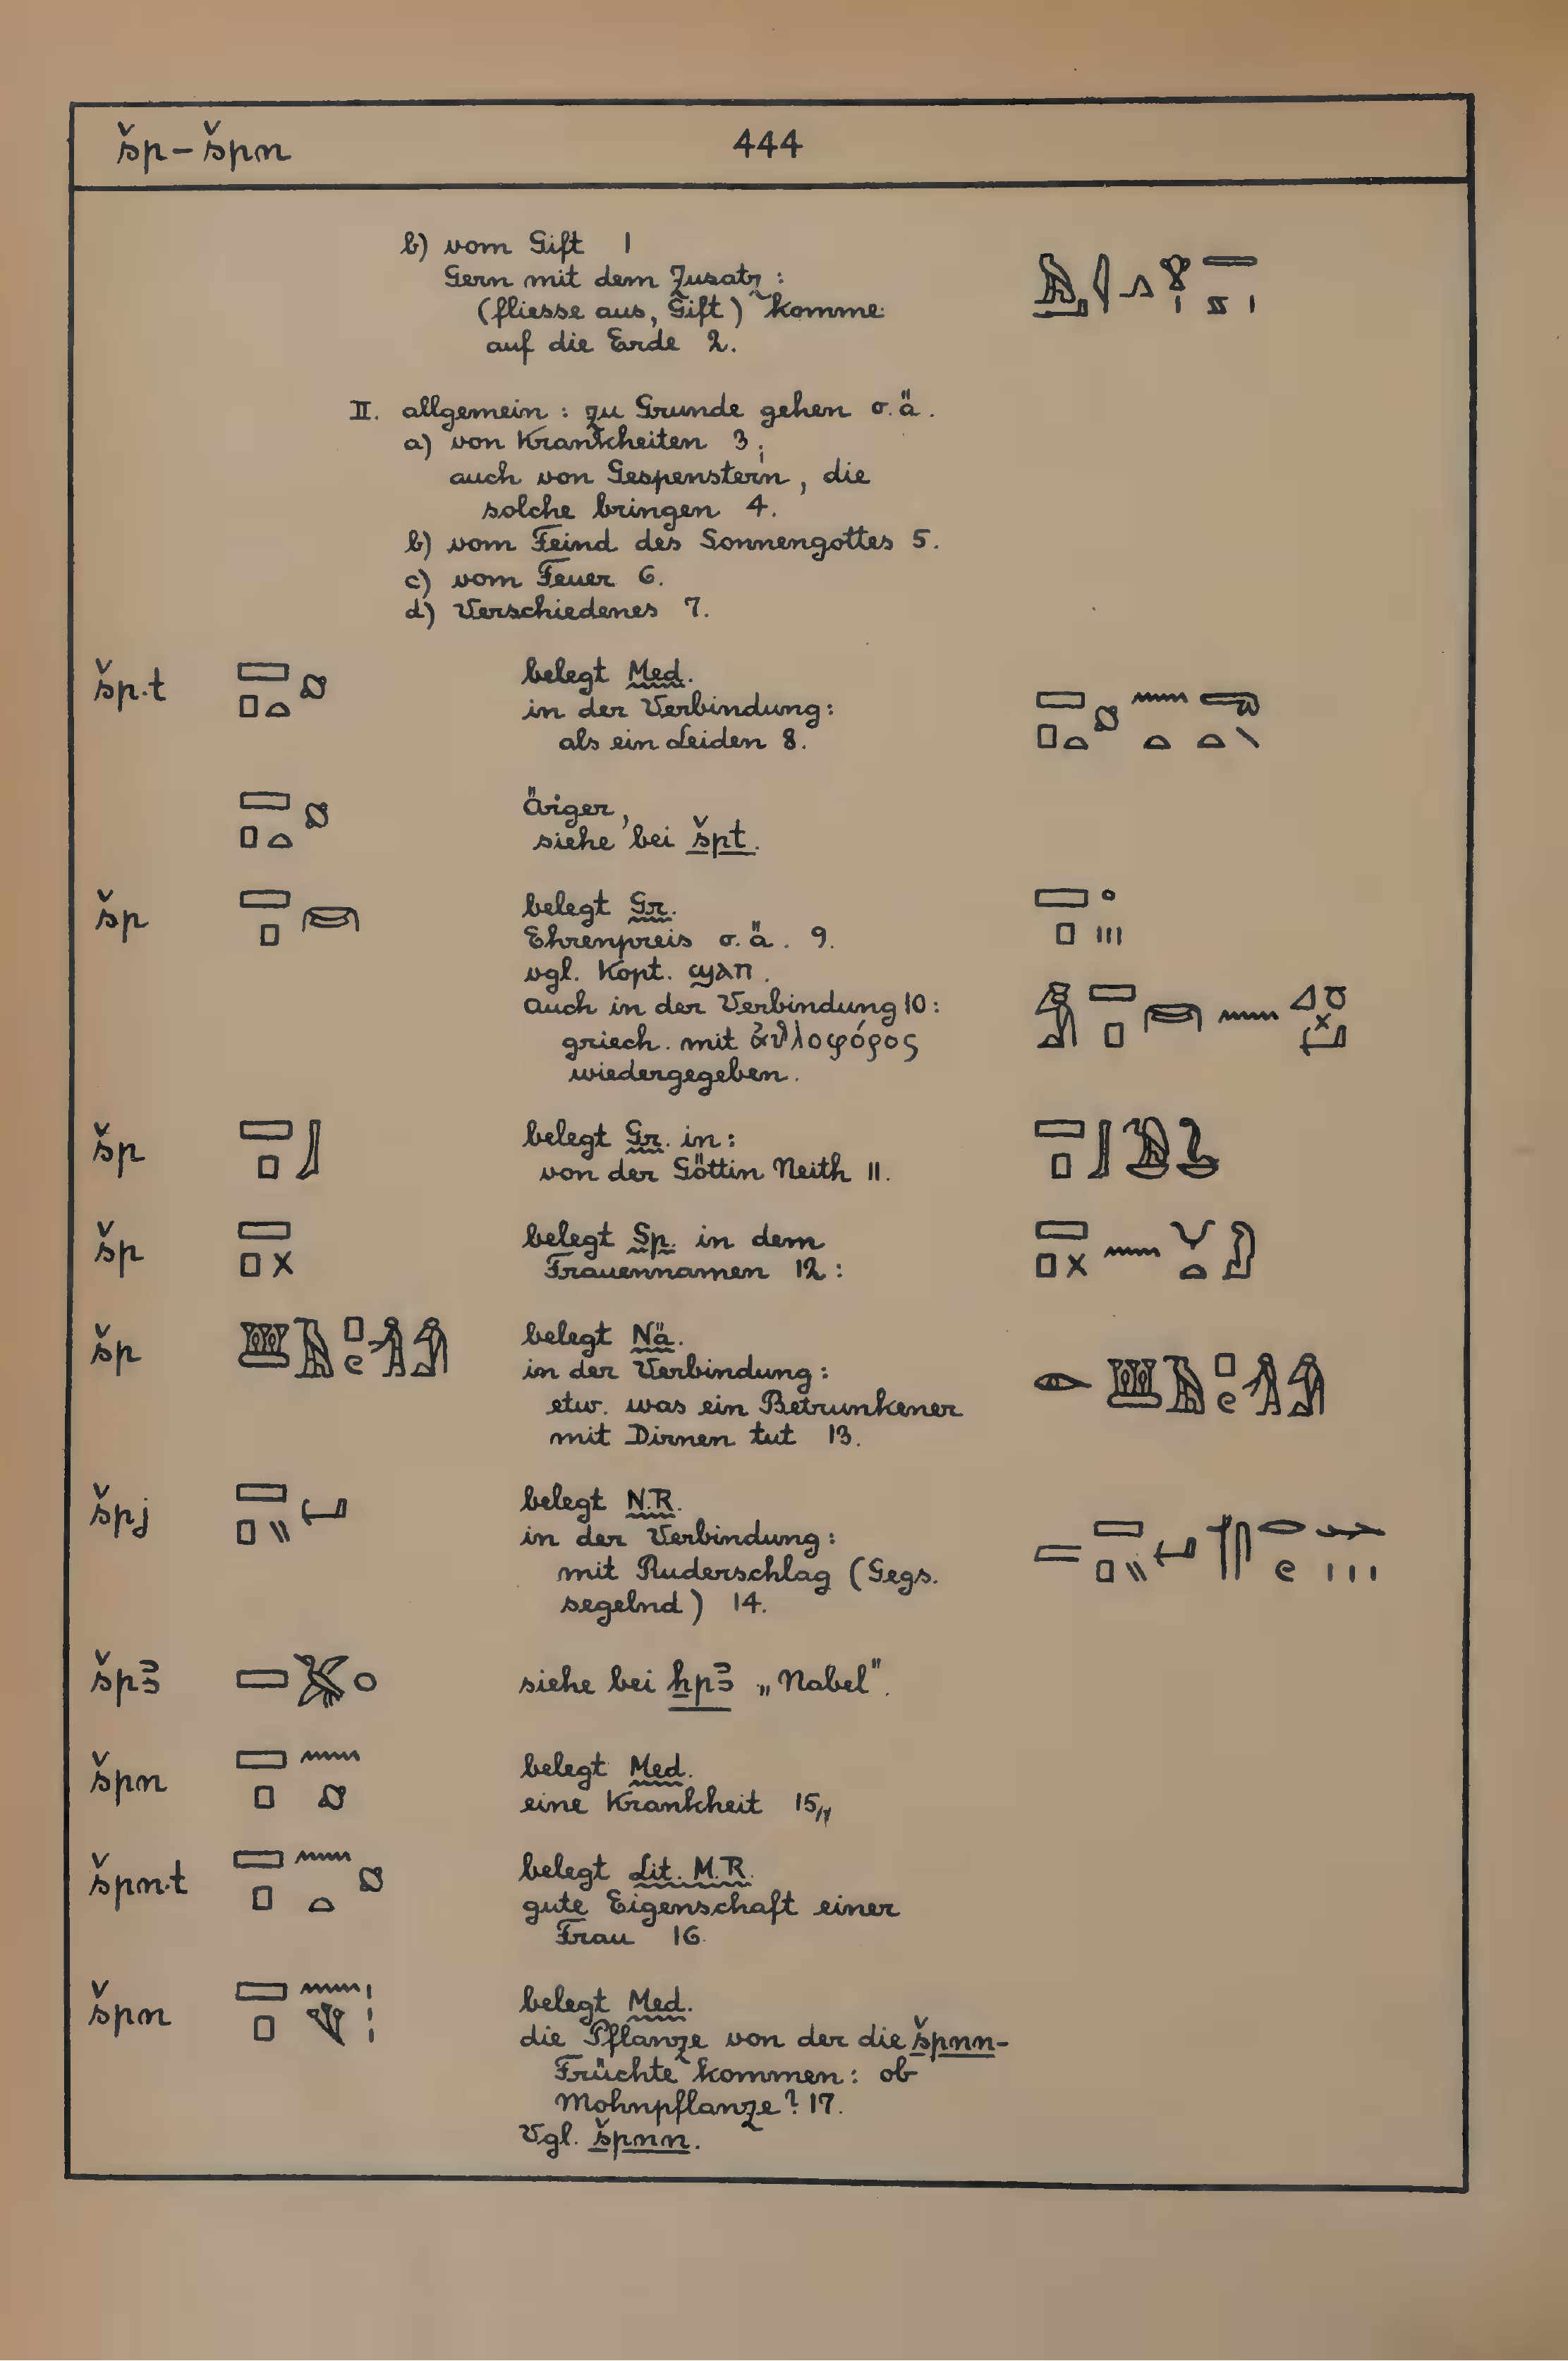 šp – špn 444
b) vom Gift 1
Gern mit dem Zusatz :
(fliesse aus, Gift) komme
auf die Erde 2.
II. allgemein : zu Grunde gehen o. ä.
a) von Krankheiten 3;
auch von Gespenstern, die
solche bringen 4.
b) vom Feind des Sonnengottes 5.
c) vom Feuer 6.
d) Verschiedenes 7.
šp.t belegt Med.
in der Verbindung:
als ein Leiden 8.
Ärger,
siehe bei špt.
šp belegt Gr.
Ehrenpreis o. ä. 9.
vgl. Kopt. ϣⲁⲡ.
auch in der Verbindung 10:
griech. mit ἀθλοφόρος
wiedergegeben.
šp belegt Gr. in:
von der Göttin Neith 11.
šp belegt Sp. in dem
Frauennamen 12:
šp belegt Nä.
in der Verbindung:
etw. was ein Betrunkener
mit Dirnen tut 13.
špj belegt N.R.
in der Verbindung:
mit Ruderschlag (Gegs.
segelnd) 14.
špꜣ siehe bei ẖpꜣ „Nabel".
špn belegt Med.
eine Krankheit 15
špn.t belegt Lit. M.R.
gute Eigenschaft einer
Frau 16.
špn belegt Med.
die Pflanze von der die špnn-
Früchte kommen: ob
Mohnpflanze? 17.
Vgl. špnn.